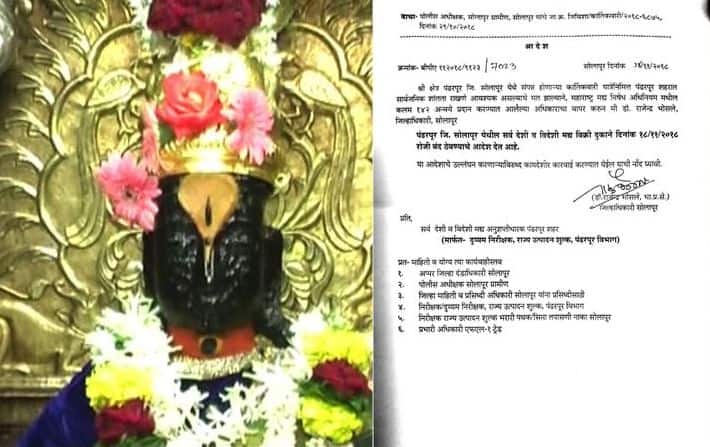 वाचा- पोलीस अधीक्षक, सोलापूर ग्रामीण, सोलापूर यांचे जा.क्र. जिविशा/कार्तिकवारी/२०१८-६८७५,
दिनांक २९/१०/२०१८
आ दे श
क्रमांक- बीपीए ११२०१८/११२३ /7023 सोलापूर दिनांक /११/२०१८
श्री क्षेत्र पंढरपूर जि. सोलापूर येथे संपन्न होणाऱ्या कार्तिकवारी यात्रेनिमित्त पंढरपूर शहरात
सार्वजनिक शांतता राखणे आवश्यक असल्याचे मत झाल्याने, महाराष्ट्र मद्य निषेध अधिनियम मधील
कलम १४२ अन्वये प्रदान करण्यात आलेल्या अधिकाराचा वापर करुन मी डॉ. राजेन्द्र भोसले,
जिल्हाधिकारी, सोलापूर
पंढरपूर जि. सोलापूर येथील सर्व देशी व विदेशी मद्य विक्री दुकाने दिनांक १८/११/२०१८
रोजी बंद ठेवण्याचे आदेश देत आहे.
या आदेशाचे उल्लंघन करणाऱ्याविरुध्द कायदेशीर कारवाई करण्यात येईल याची नोंद घ्यावी.
(डॉ.राजेन्द्र भोसले, भा.प्र.से.)
जिल्हाधिकारी सोलापूर
प्रति,
सर्व देशी व विदेशी मद्य अनुज्ञप्तीधारक पंढरपूर शहर
(मार्फत- दुय्यम निरीक्षक, राज्य उत्पादन शुल्क, पंढरपूर विभाग)
प्रत- माहिती व योग्य त्या कार्यवाहीस्तव
१. अप्पर जिल्हा दंडाधिकारी सोलापूर
२. पोलीस अधीक्षक सोलापूर ग्रामीण
३. जिल्हा माहिती व प्रसिध्दी अधिकारी सोलापूर यांना प्रसिध्दीसाठी
४. निरीक्षक/दुय्यम निरीक्षक, राज्य उत्पादन शुल्क, पंढरपूर विभाग
५. निरीक्षक राज्य उत्पादन शुल्क भरारी पथक/सिमा तपासणी नाका सोलापूर
६. प्रभारी अधिकारी एफएल-१ ट्रेड